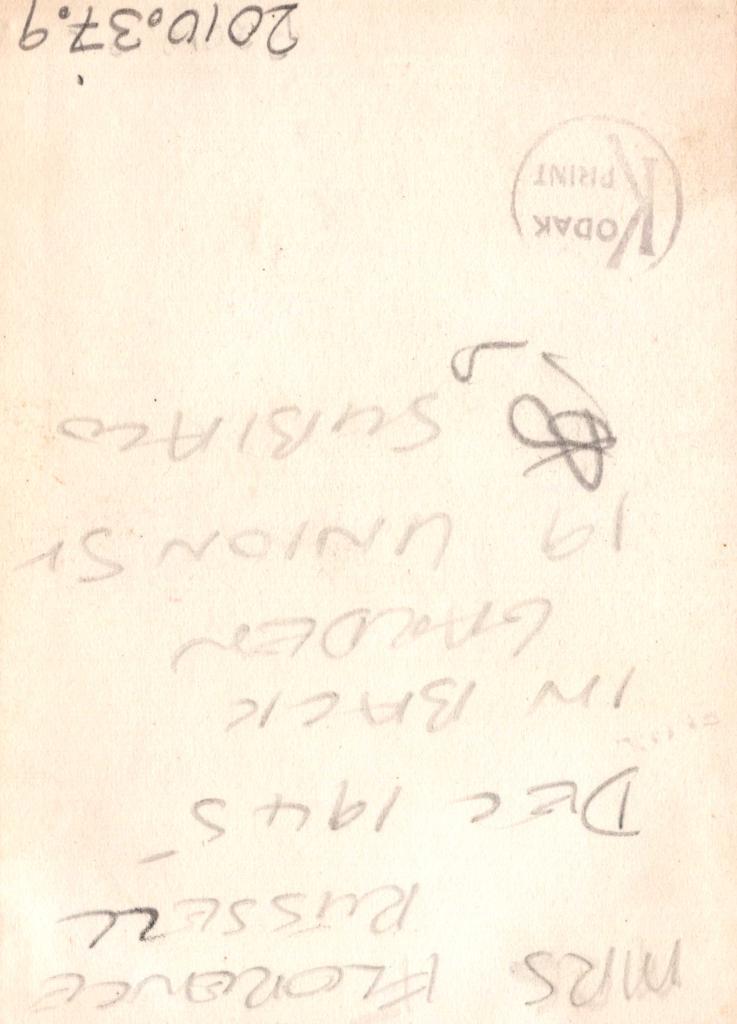 MRS FLORENCE
RUSSELL
DEC 1945
IN BACK
GARDEN
19 UNION ST
SUBIACO
KODAK
PRINT
2010.37.9